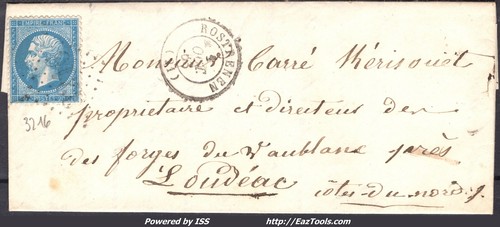 EMPIRE FRANC
ROSTRENEN
Monsieur Carré Kérisouët
3216
propriétaire et directeur de
des forges du Vaublanc près
Loudéac
côtes-du-nord
Powered by ISS
http://EazTools.com